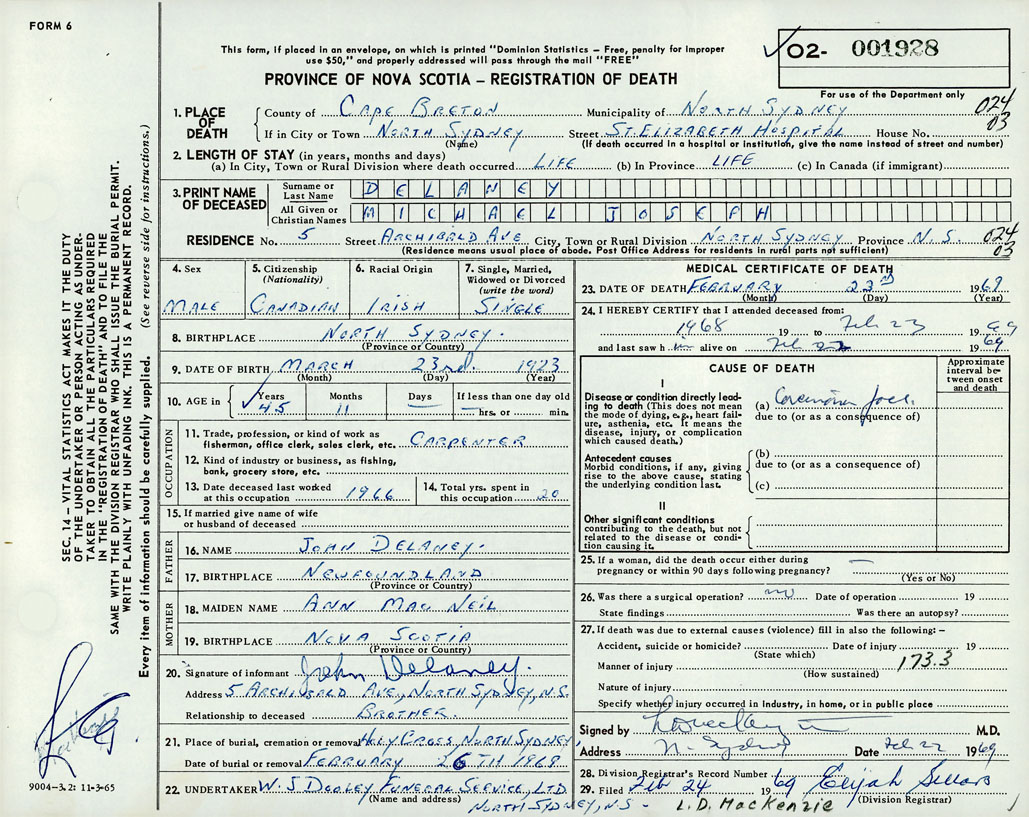 FORM 6
This form, if placed in an envelope, on which is printed "Dominion Statistics – Free, penalty for improper
use $50," and properly addressed will pass through the mail "FREE"
O2- 001928
PROVINCE OF NOVA SCOTIA – REGISTRATION OF DEATH
For use of the Department only
1. PLACE OF DEATH
County of Cape Breton Municipality of North Sydney 024
If in City or Town North Sydney Street St. Elizabeth Hospital House No. 03
(Name) (If death occurred in a hospital or institution, give the name instead of street and number)
2. LENGTH OF STAY (in years, months and days)
(a) In City, Town or Rural Division where death occurred LIFE (b) In Province LIFE (c) In Canada (if immigrant)
3. PRINT NAME OF DECEASED
Surname or Last Name DELANEY
All Given or Christian Names MICHAEL JOSEPH
RESIDENCE No. 5 Street Archibald Ave City, Town or Rural Division North Sydney Province N.S. 024
(Residence means usual place of abode. Post Office Address for residents in rural parts not sufficient) 03
4. Sex
Male
5. Citizenship
(Nationality)
Canadian
6. Racial Origin
Irish
7. Single, Married,
Widowed or Divorced
(write the word)
Single
8. BIRTHPLACE North Sydney.
(Province or Country)
9. DATE OF BIRTH March 23rd. 1923
(Month) (Day) (Year)
10. AGE in
Years 45
Months 11
Days –
If less than one day old
hrs. or min.
OCCUPATION
11. Trade, profession, or kind of work as
fisherman, office clerk, sales clerk, etc. Carpenter
12. Kind of industry or business, as fishing,
bank, grocery store, etc.
13. Date deceased last worked
at this occupation 1966
14. Total yrs. spent in
this occupation 20
15. If married give name of wife
or husband of deceased
FATHER
16. NAME John Delaney.
17. BIRTHPLACE Newfoundland
(Province or Country)
MOTHER
18. MAIDEN NAME Ann Mac Neil
19. BIRTHPLACE Nova Scotia
(Province or Country)
20. Signature of informant John Delaney.
Address 5 Archibald Ave, North Sydney, N.S.
Relationship to deceased Brother.
21. Place of burial, cremation or removal Holy Cross North Sydney,
Date of burial or removal February 26th 1969
22. UNDERTAKER W. S Dooley Funeral Service, Ltd
(Name and address) North Sydney, N.S.
MEDICAL CERTIFICATE OF DEATH
23. DATE OF DEATH February 23rd 1969
(Month) (Day) (Year)
24. I HEREBY CERTIFY that I attended deceased from:
1968 19 to Feb 23 19 69
and last saw h im alive on Feb 19 69
CAUSE OF DEATH
Approximate
interval be-
tween onset
and death
I
Disease or condition directly lead-
ing to death (This does not
mean the mode of dying, e.g., heart fail-
ure, asthenia, etc. It means the
disease, injury, or complication
which caused death.)
(a) Carcinoma face.
due to (or as a consequence of)
Antecedent causes
Morbid conditions, if any, giving
rise to the above cause, stating
the underlying condition last.
(b)
due to (or as a consequence of)
(c)
II
Other significant conditions
contributing to the death, but not
related to the disease or condi-
tion causing it.
25. If a woman, did the death occur either during
pregnancy or within 90 days following pregnancy? –
(Yes or No)
26. Was there a surgical operation? no Date of operation 19
State findings Was there an autopsy?
27. If death was due to external causes (violence) fill in also the following: –
Accident, suicide or homicide? Date of injury 19
(State which)
Manner of injury 173.3
(How sustained)
Nature of injury
Specify whether injury occurred in industry, in home, or in public place
Signed by M.D.
Address N. Sydney Date Feb 19 69
28. Division Registrar's Record Number
29. Filed Feb 24 19 69 Elijah Sellars
(Division Registrar)
L.D. MacKenzie
SEC. 14 – VITAL STATISTICS ACT MAKES IT THE DUTY
OF THE UNDERTAKER OR PERSON ACTING AS UNDER-
TAKER TO OBTAIN ALL THE PARTICULARS REQUIRED
IN THE "REGISTRATION OF DEATH" AND TO FILE THE
SAME WITH THE DIVISION REGISTRAR WHO SHALL ISSUE THE BURIAL PERMIT.
WRITE PLAINLY WITH UNFADING INK. THIS IS A PERMANENT RECORD.
Every item of information should be carefully supplied. (See reverse side for instructions.)
9004-3.2: 11-3-65